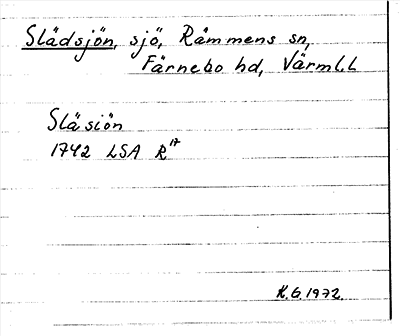 Slädsjön, sjö, Rämmens sn,
Färnebo hd, Värml. l
Släsiön
1742 LSA R¹⁷
K.G. 1972.